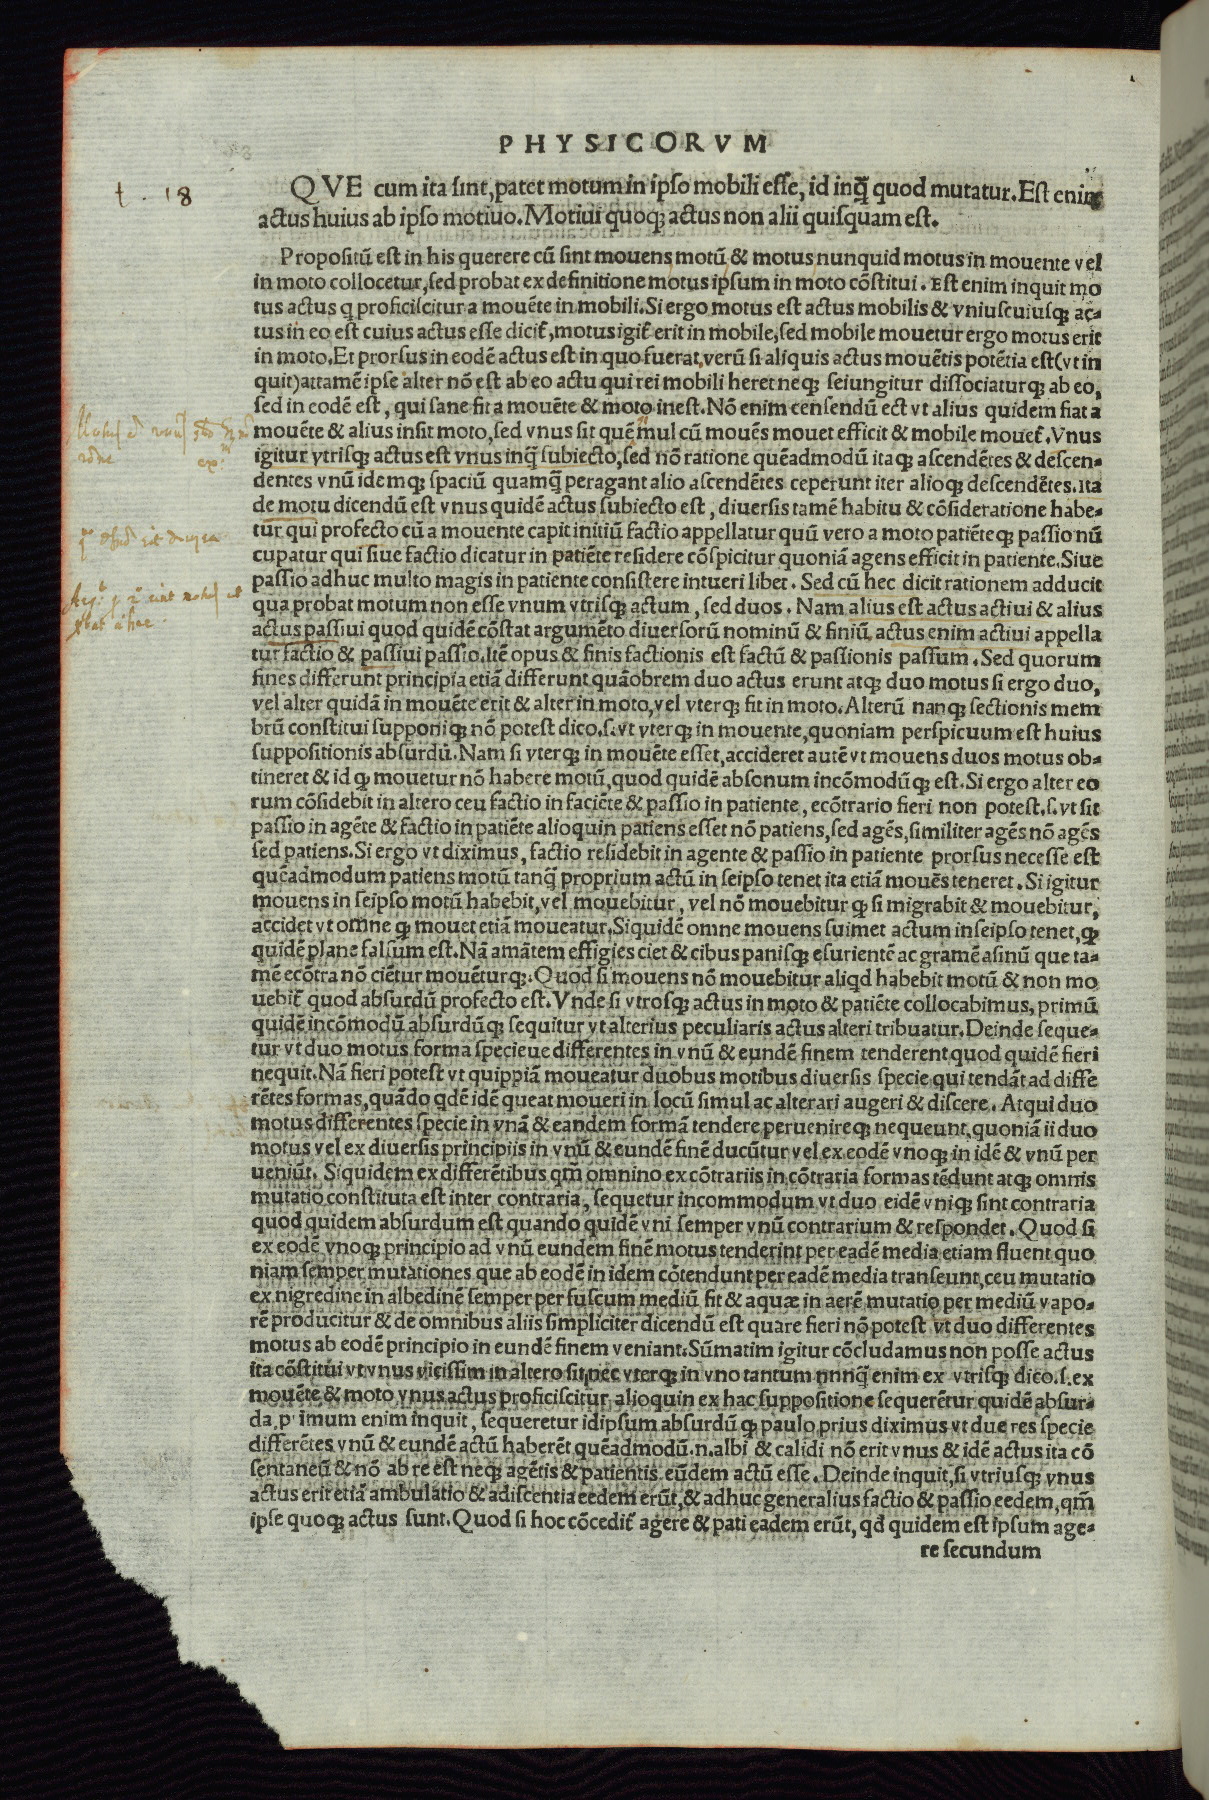 PHYSICORVM
t. 18
QVE cum ita sint, patet motum in ipso mobili esse, id inq̃ quod mutatur. Est enim
actus huius ab ipso motiuo. Motiui quoqꝫ actus non alii quisquam est.
Propositũ est in his querere cũ sint mouens motũ & motus nunquid motus in mouente vel
in moto collocetur, sed probat ex definitione motus ipsum in moto cõstitui. Est enim inquit mo
tus actus q proficiscitur a mouẽte in mobili. Si ergo motus est actus mobilis & vniuscuiusqꝫ ac-
tus in eo est cuius actus esse dicit̃, motus igit̃ erit in mobile, sed mobile mouetur ergo motus erit
in moto. Et prorsus in eodẽ actus est in quo fuerat, verũ si aliquis actus mouẽtis potẽtia est (vt in
quit) attamẽ ipse alter nõ est ab eo actu qui rei mobili heret neqꝫ seiungitur dissociaturqꝫ ab eo,
sed in eodẽ est, qui sane fit a mouẽte & moto inest. Nõ enim censendũ ect vt alius quidem fiat a
mouẽte & alius insit moto, sed vnus sit quẽ mul cũ mouẽs mouet efficit & mobile mouet̃. Vnus
igitur vtrisqꝫ actus est vnus inq̃ subiecto, sed nõ ratione quẽadmodũ itaqꝫ ascendẽtes & descen-
dentes vnũ idemqꝫ spaciũ quamq̃ peragant alio ascendẽtes ceperunt iter alioqꝫ descendẽtes. Ita
de motu dicendũ est vnus quidẽ actus subiecto est, diuersis tamẽ habitu & cõsideratione habe-
tur qui profecto cũ a mouente capit initiũ factio appellatur quũ vero a moto patiẽteqꝫ passio nũ
cupatur qui siue factio dicatur in patiẽte residere cõspicitur quoniã agens efficit in patiente. Siue
passio adhuc multo magis in patiente consistere intueri libet. Sed cũ hec dicit rationem adducit
qua probat motum non esse vnum vtrisqꝫ actum, sed duos. Nam alius est actus actiui & alius
actus passiui quod quidẽ cõstat argumẽto diuersorũ nominũ & finiũ, actus enim actiui appella
tur factio & passiui passio. Itẽ opus & finis factionis est factũ & passionis passum. Sed quorum
fines differunt principia etiã differunt quãobrem duo actus erunt atqꝫ duo motus si ergo duo,
vel alter quidã in mouẽte erit & alter in moto, vel vterqꝫ fit in moto. Alterũ nanqꝫ sectionis mem
brũ constitui supponiqꝫ nõ potest dico.s. vt vterqꝫ in mouente, quoniam perspicuum est huius
suppositionis absurdũ. Nam si vterqꝫ in mouẽte esset, accideret autẽ vt mouens duos motus ob-
tineret & id qꝫ mouetur nõ habere motũ, quod quidẽ absonum incõmodũqꝫ est. Si ergo alter eo
rum cõsidebit in altero ceu factio in faciẽte & passio in patiente, ecõtrario fieri non potest.s. vt sit
passio in agẽte & factio in patiẽte alioquin patiens esset nõ patiens, sed agẽs, similiter agẽs nõ agẽs
sed patiens. Si ergo vt diximus, factio residebit in agente & passio in patiente prorsus necesse est
quẽadmodum patiens motũ tanq̃ proprium actũ in seipso tenet ita etiã mouẽs teneret. Si igitur
mouens in seipso motũ habebit, vel mouebitur, vel nõ mouebitur qꝫ si migrabit & mouebitur,
accidet vt omne qꝫ mouet etiã moueatur. Siquidẽ omne mouens suimet actum in seipso tenet, qꝫ
quidẽ plane falsum est. Nã amãtem effigies ciet & cibus panisqꝫ esurientẽ ac gramẽ asinũ que ta-
mẽ ecõtra nõ ciẽtur mouẽturqꝫ. Quod si mouens nõ mouebitur aliqd habebit motũ & non mo
uebit̃ quod absurdũ profecto est. Vnde si vtrosqꝫ actus in moto & patiẽte collocabimus, primũ
quidẽ incõmodũ absurdũqꝫ sequitur vt alterius peculiaris actus alteri tribuatur. Deinde seque-
tur vt duo motus forma specieue differentes in vnũ & eundẽ finem tenderent quod quidẽ fieri
nequit. Nã fieri potest vt quippiã moueatur duobus motibus diuersis specie qui tendãt ad diffe
rẽtes formas, quãdo qdẽ idẽ queat moueri in locũ simul ac alterari augeri & discere. Atqui duo
motus differentes specie in vnã & eandem formã tendere peruenireqꝫ nequeunt, quoniã ii duo
motus vel ex diuersis principiis in vnũ & eundẽ finẽ ducũtur vel ex eodẽ vnoqꝫ in idẽ & vnũ per
ueniũt. Siquidem ex differẽtibus qm̃ omnino ex cõtrariis in cõtraria formas tẽdunt atqꝫ omnis
mutatio constituta est inter contraria, sequetur incommodum vt duo eidẽ vniqꝫ sint contraria
quod quidem absurdum est quando quidẽ vni semper vnũ contrarium & respondet. Quod si
ex eodẽ vnoqꝫ principio ad vnũ eundem finẽ motus tenderint per eadẽ media etiam fluent quo
niam semper mutationes que ab eodẽ in idem cõtendunt per eadẽ media transeunt, ceu mutatio
ex nigredine in albedinẽ semper per fuscum mediũ fit & aquæ in aerẽ mutatio per mediũ vapo-
rẽ producitur & de omnibus aliis simpliciter dicendũ est quare fieri nõ potest vt duo differentes
motus ab eodẽ principio in eundẽ finem veniant. Sũmatim igitur cõcludamus non posse actus
ita cõstitui vt vnus vicissim in altero sit, nec vterqꝫ in vno tantum nnnq̃ enim ex vtrisqꝫ dico.s. ex
mouẽte & moto vnus actus proficiscitur alioquin ex hac suppositione sequerẽtur quidẽ absur-
da, p imum enim inquit, sequeretur idipsum absurdũ qꝫ paulo prius diximus vt due res specie
differẽtes vnũ & eundẽ actũ haberẽt quẽadmodũ.n. albi & calidi nõ erit vnus & idẽ actus ita cõ
sentaneũ & nõ ab re est neqꝫ agẽtis & patientis eũdem actũ esse. Deinde inquit, si vtriusqꝫ vnus
actus erit etiã ambulatio & adiscentia eedem erũt, & adhuc generalius factio & passio eedem, qm̃
ipse quoqꝫ actus sunt. Quod si hoc cõcedit̃ agere & pati eadem erũt, qd quidem est ipsum age-
re secundum